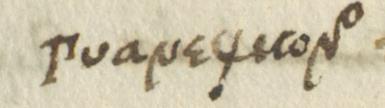 πυανεψιωνº